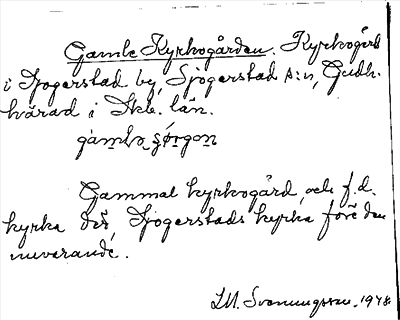 Gamle Kyrkogården. Kyrkogård
i Sjogerstad by, Sjogerstad s:n, Gudh.
härad i Skb. län.
gàmlɔ ʂórgon
Gammal kyrkogård, och f.d.
kyrka där, Sjogerstads kyrka före den
nuvarande.
I.M. Svanungsson. 1948